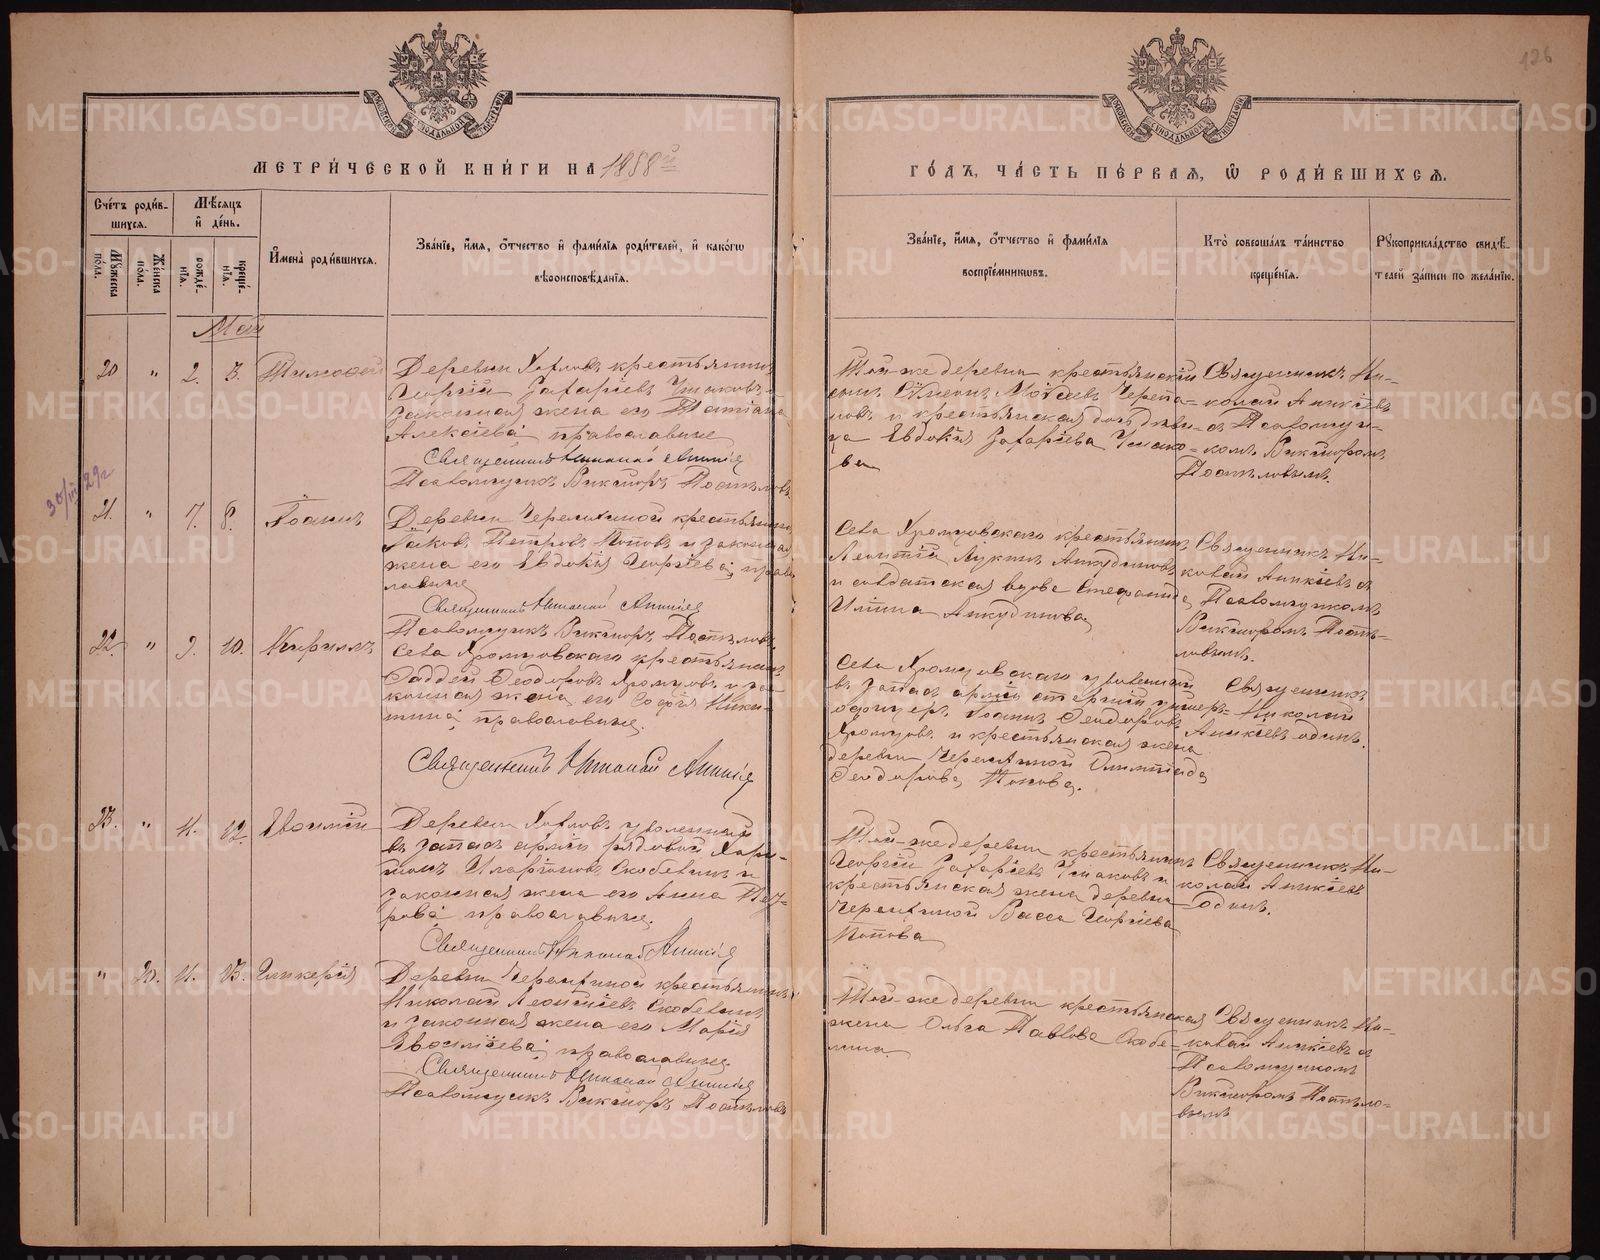 126
МЕТРИ́ЧЕСКОЙ КНИ́ГИ НА 1888й
ГО́ДЪ, ЧА́СТЬ ПЕ́РВАЯ, Ѡ РОДИ́ВШИХСЯ.
Сче́тъ роди́в-
шихся.
Мѣ́сяцъ
и҆ де́нь.
И҆мена̀ роди́вшихся.
Зва́нїе, и҆́мя, ѻ҆́тчество и҆ фами́лїѧ роди́телей, и҆ како́гѡ
вѣроисповѣ́данїѧ.
Мꙋ́жеска
по́ла.
Же́нска
по́ла.
рожде́-
нїѧ.
креще́-
нїѧ.
Зва́нїе, и҆́мя, ѻ҆́тчество и҆ фами́лїѧ
воспрїе́мникѡвъ.
Кто̀ соверша́лъ та́инство
креще́нїѧ.
Рꙋкоприкла́дство свидѣ́-
телей за́писи по жела́нїю.
Май
20 " 2. 3. Тимофей
Деревни Хохловъ крестьянинъ
Георгій Захаріевъ Ушаковъ и
законная жена его Татіана
Алексіева, православные
Священникъ Николай Аникіев
Псаломщикъ Викторъ Постыловъ
Той-же деревни крестьянскій
сынъ Сѵмеонъ Моѵсеевъ Черепа-
новъ и крестьянская дочь дѣви-
ца Евдокія Захаріева Ушако-
ва
Священникъ Ни-
колай Аникіевъ
съ Псаломщи-
комъ Викторомъ
Постыловымъ.
21. " 7. 8. Іоаннъ
Деревни Черемтиной крестьянинъ
Іаковъ Петровъ Поповъ и законная
жена его Евдокія Георгіева, право
славные
Священникъ Николай Аникіев
Псаломщикъ Викторъ Постыловъ
Села Хромцовскаго крестьянинъ
Леонтій Лукинъ Анкудиновъ
и солдатская вдова Стефанида
Ильина Анкудинова
Священникъ Ни-
колай Аникіевъ съ
Псаломщикомъ
Викторомъ Посты-
ловымъ.
22. " 9. 10. Кириллъ
Села Хромцовскаго крестьянинъ
Фаддей Ѳеодоровъ Хромцовъ и за-
конная жена его Софія Ники-
тина, православные.
Священникъ Николай Аникіев
Села Хромцовскаго уволенный
въ запасъ арміи старшій унтеръ-
офицеръ Іоаннъ Ѳеодоровъ
Хромцовъ и крестьянская жена
деревни Черемтиной Олимпіада
Ѳеодорова Попова.
Священникъ
Николай
Аникіевъ одинъ.
23. " 11. 12. Евѳимій
Деревни Хохловъ уволенный
въ запасъ арміи рядовой Хари-
тонъ Иларіоновъ Скобелинъ и
законная жена его Анна Пет-
рова, православные.
Священникъ Николай Аникіев
Той-же деревни крестьянинъ
Георгій Захаріевъ Ушаковъ и
крестьянская жена деревни
Черемтиной Васса Георгіева
Попова
Священникъ Ни-
колай Аникіевъ
одинъ.
" 20. 11. 13. Гликерія
Деревни Черемтиной крестьянинъ
Николай Леонтіевъ Скобелинъ
и законная жена его Марія
Евѳиміева, православные.
Священникъ Николай Аникіев
Псаломщикъ Викторъ Постыловъ
Той-же деревни крестьянская
жена Ольга Павлова Скобе-
лина.
Священникъ Ни-
колай Аникіевъ съ
Псаломщикомъ
Викторомъ Постыло-
вымъ